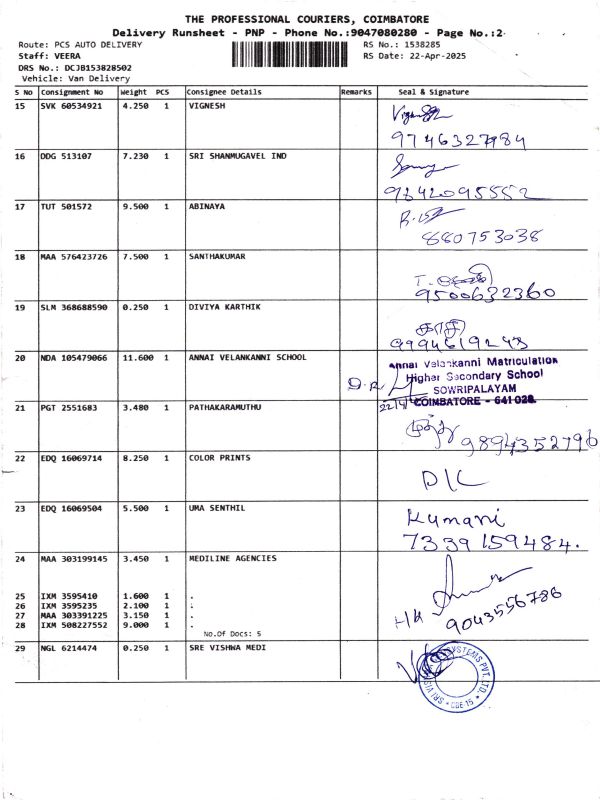 THE PROFESSIONAL COURIERS, COIMBATORE
Delivery Runsheet - PNP - Phone No.:9047080280 - Page No.:2
Route: PCS AUTO DELIVERY RS No.: 1538285
Staff: VEERA RS Date: 22-Apr-2025
DRS No.: DCJB153828502
Vehicle: Van Delivery
S No Consignment No Weight PCS Consignee Details Remarks Seal & Signature
15 SVK 60534921 4.250 1 VIGNESH
9746327984
16 DDG 513107 7.230 1 SRI SHANMUGAVEL IND
9842095552
17 TUT 501572 9.500 1 ABINAYA
880753038
18 MAA 576423726 7.500 1 SANTHAKUMAR
9500632360
19 SLM 368688590 0.250 1 DIVIYA KARTHIK
காசி
9994619243
20 NDA 105479066 11.600 1 ANNAI VELANKANNI SCHOOL
Annai Velankanni Matriculation
Higher Secondary School
SOWRIPALAYAM
COIMBATORE - 641 028.
21 PGT 2551683 3.480 1 PATHAKARAMUTHU
முத்து
9894352796
22 EDQ 16069714 8.250 1 COLOR PRINTS
D/C
23 EDQ 16069504 5.500 1 UMA SENTHIL
Kumani
7339159484.
24 MAA 303199145 3.450 1 MEDILINE AGENCIES
25 IXM 3595410 1.600 1 .
26 IXM 3595235 2.100 1 .
27 MAA 303391225 3.150 1 .
28 IXM 508227552 9.000 1 .
9043556786
No.Of Docs: 5
29 NGL 6214474 0.250 1 SRE VISHWA MEDI
SYSTEMS PVT. LTD.